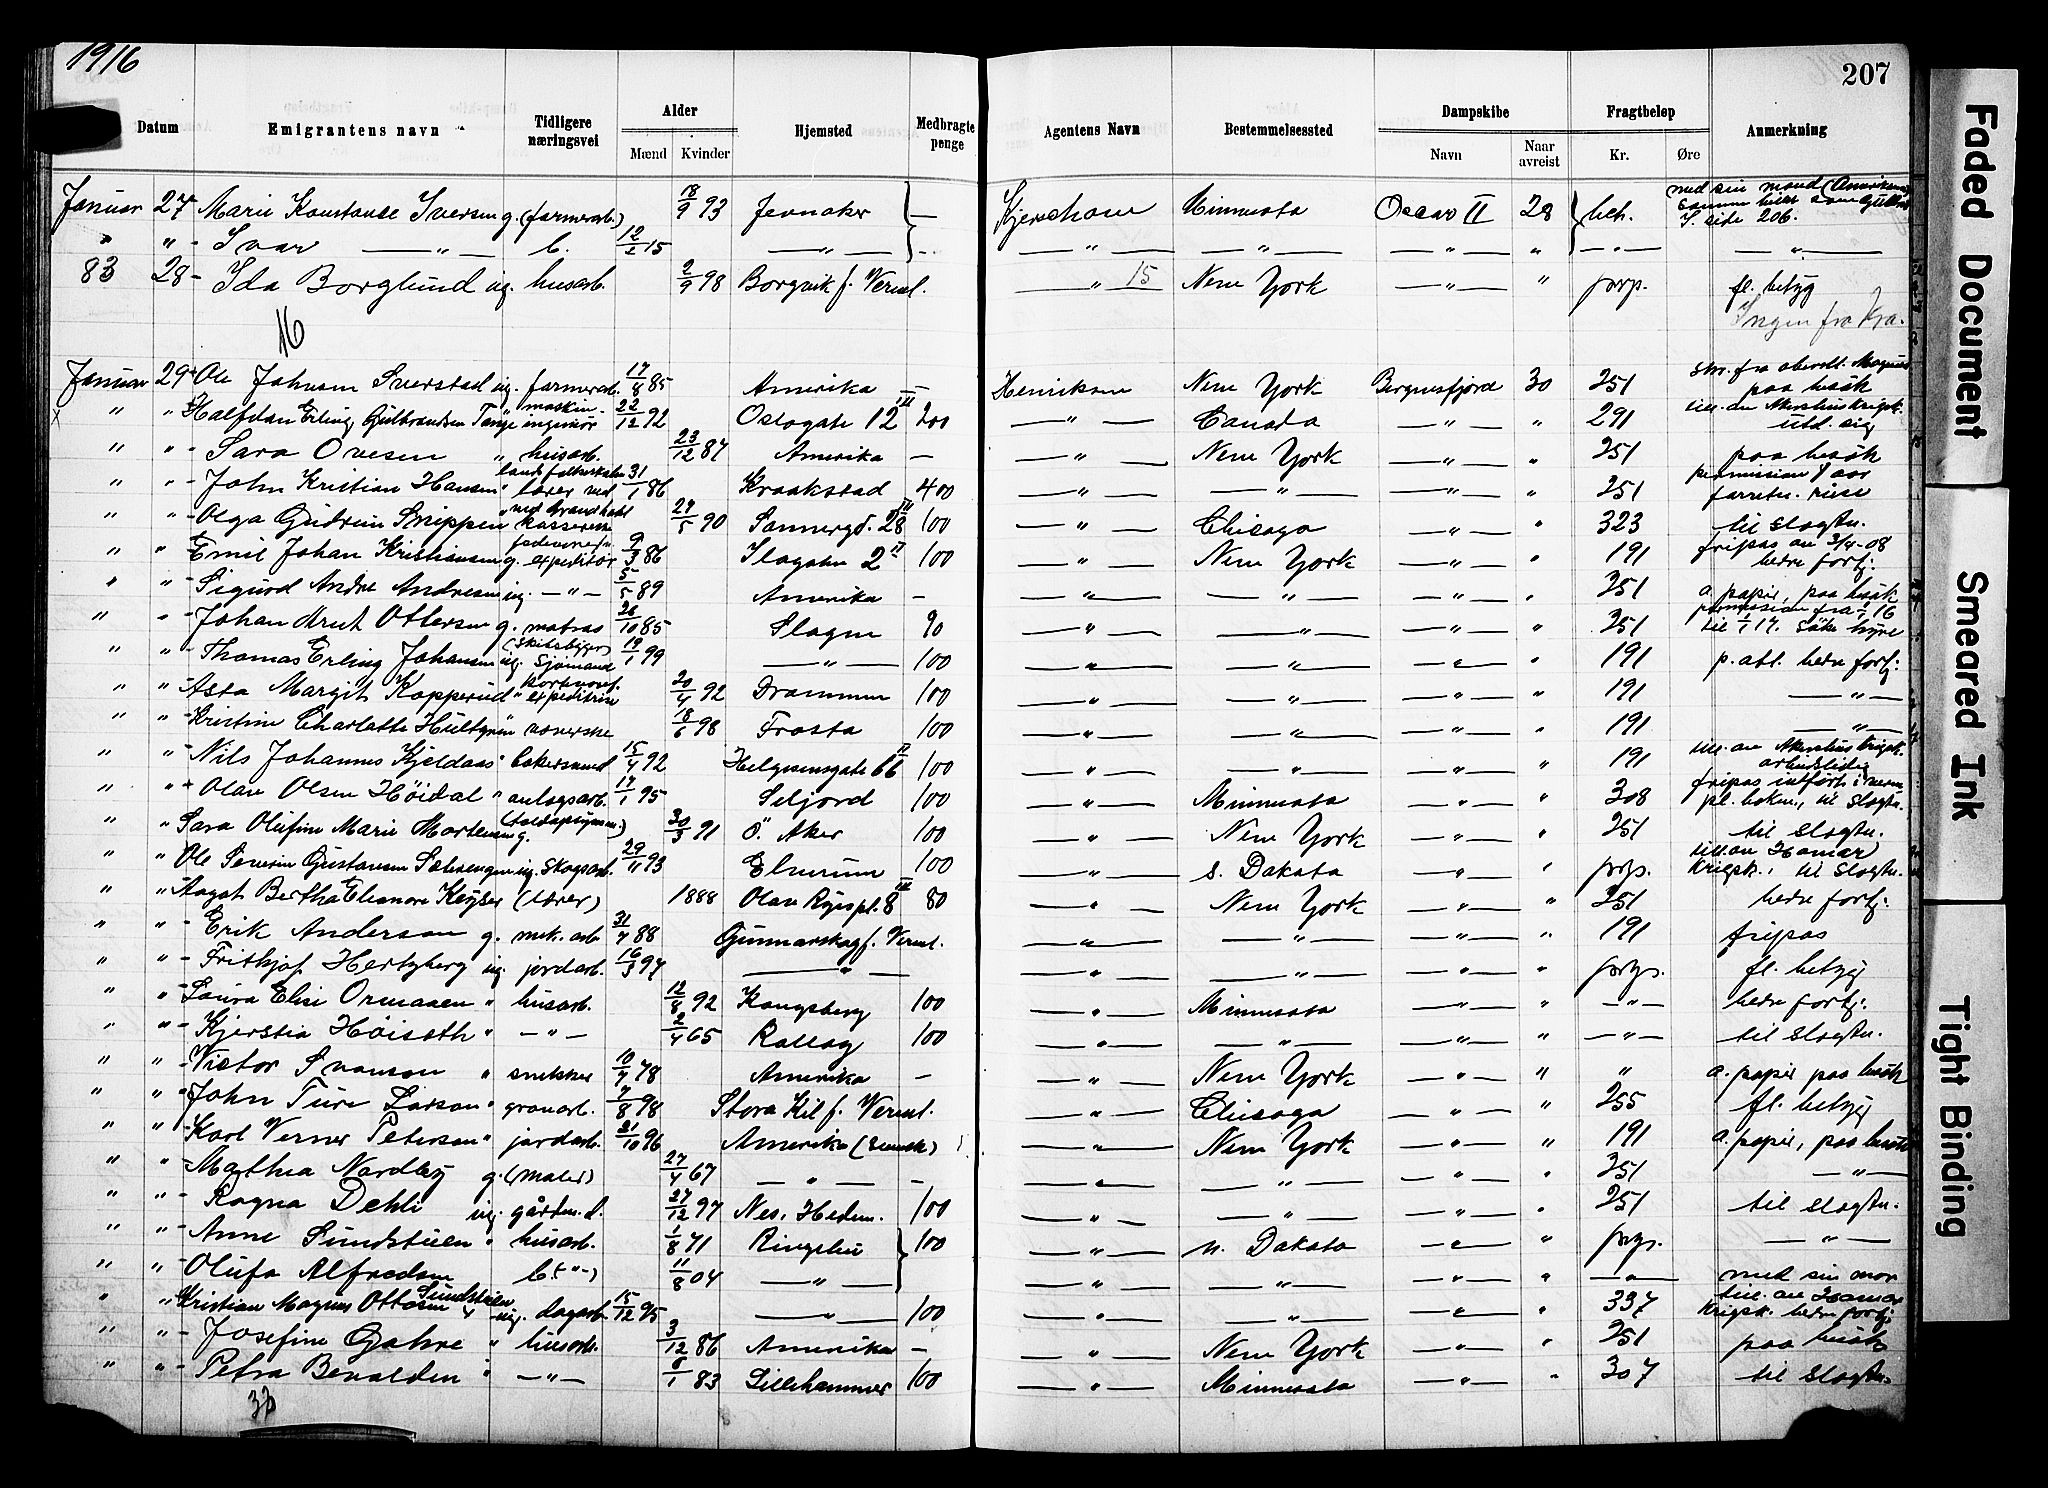 1916
207
Datum Emigrantens navn Tidligere næringsvei Alder Mænd Kvinder Hjemsted Medbragte penge Agentens Navn Bestemmelsessted Dampskibe Navn Naar avreist Fragtbeløp Kr. Øre Anmerkning
Januar 27 Marie Konstanse Iversen g. (farmerarb.) 18/9 93 Jevnaker — Minnesota Oscar II 28 beh. med sin mand
S. side 206.
" " Ivar —"— b. 15 —"— —"— —"— —"— " —"— —"—
83 28 Ida Borglund ug. husarb. 2/9 98 Borgvik f. Verml. " 15 New York —"— " prp. fl. betyg
16 Ingen fra Kra.
Januar 29 Ole Johnsen Sverstad ug. farmerarb. 17/8 85 Amerika — Henriksen New York Bergensfjord 30 251 paa besøk
x " " Halfdan Erling Gulbrandsen Tange " maskiningeniør 22/12 92 Oslogate 12 III 200 —"— Canada —"— " 291 till. av Akershus krigsk. utd. sig
" " Sara Ovesen " husarb. 23/12 87 Amerika — —"— New York —"— " 251 paa besøk
" " John Kristian Hansen " lærer ved 31/1 86 Kraakstad 400 —"— —"— —"— " 251 permission 1 aar forretn. reise
" " Olga Gudrun Snippen " kassererske 27/5 90 Sannergt. 28 III 100 —"— Chicago —"— " 323 til slegtn.
" " Emil Johan Kristiansen g. expeditør 9/3 86 2 II 100 —"— New York —"— " 191 fripas av 3/4-08 bedre fortj.
" " Sigurd Andre Andresen ug. —"— 5/5 89 Amerika — —"— —"— —"— " 251 a. papir, paa besøk
" " Johan Ottersen g. matros 26/10 85 Slagen 90 —"— —"— —"— " 251 permission fra 1/1 16 til 1/1 17. søke hyre
" " Thomas Erling Johansen ug. (skibsbygger) sjømand 19/1 99 —"— 100 —"— —"— —"— " 191 p. att. bedre fortj.
" " Asta Margit Kopperud " expeditrice 20/4 92 Drammen 100 —"— —"— —"— " 191 —"—
" " Kristine Charlotte Hultgren " væverske 18/6 98 Frosta 100 —"— —"— —"— " 191 —"—
" " Nils Johannes Kjeldaas " bakersvend 15/4 92 Helgesensgate 66 II 100 —"— —"— —"— " 191 till. av Akershus krigsk. arbeidsledig
" " Olav Olsen Høidal " anlegsarb. 17/1 95 Seljord 100 —"— Minnesota —"— " 308 fripas indført i vern. pl. boken, til slegtn.
" " Sara Olufine Marie Mortensen g. 30/3 91 Ö. Aker 100 —"— New York —"— " 251 til slegtn.
" " Ole Severin Gustavsen Sætrengen ug. skogsarb. 29/11 93 Elverum 100 —"— S. Dakota —"— " prp. till. av Hamar krigsk., til slegtn.
" " Aagot Bertha Eleonore Keyser (lærer) 1888 Olav Ryes pl. 8 III 80 —"— New York —"— " 251 bedre fortj.
" " Erik Anderson g. mek. arb. 31/7 88 Gunnarskog f. Verml. —"— —"— —"— " 191 fripas
" " Frithjof Hertzberg ug. jordarb. 16/3 97 —"— —"— —"— —"— " prp. fl. betyg
" " Laura Elise Ormaasen " husarb. 12/8 92 Kongsberg 100 —"— Minnesota —"— " —"— bedre fortj.
" " Kjerstia Høiseth " —"— 2/4 65 Rollag 100 —"— —"— —"— " —"— til slegtn.
" " Victor Svanson " snekker 10/7 78 Amerika — —"— New York —"— " " a. papir paa besøk
" " John Ture Larson " gruvarb. 7/8 98 Stora Kil f. Verml. —"— Chicago —"— " 255 fl. betyg
" " Karl Verner Peterson " jordarb. 21/10 96 Amerika (svensk) —"— New York —"— " 191 a. papir, paa besøk
" " Mathea Nordby g. (maler) 27/4 67 —"— — —"— —"— —"— " 251 —"—
" " Ragna Dehli ug. gårdm. d. 27/12 97 Nes, Hedem. 100 —"— —"— —"— " 251 til slegtn.
" " Anne Sundstuen " husarb. 1/8 71 Ringebu 100 —"— N. Dakota —"— " prp. —"—
" " Olufa Alfredsen b. (—"—) 11/8 04 —"— —"— —"— —"— " —"— med sin mor
" " Kristian Magnus Ottosen Sundstuen ug. dagarb. 15/12 95 —"— 100 —"— —"— —"— " 337 till. av Hamar krigsk. bedre fortj.
" " Josefine Gahre " husarb. 3/12 86 Amerika — —"— New York —"— " 251 paa besøk
" " Petra Bevolden " —"— 8/1 83 Lillehammer 100 —"— Minnesota —"— " 307 til slegtn.
Faded Document
Smeared Ink
Tight Binding